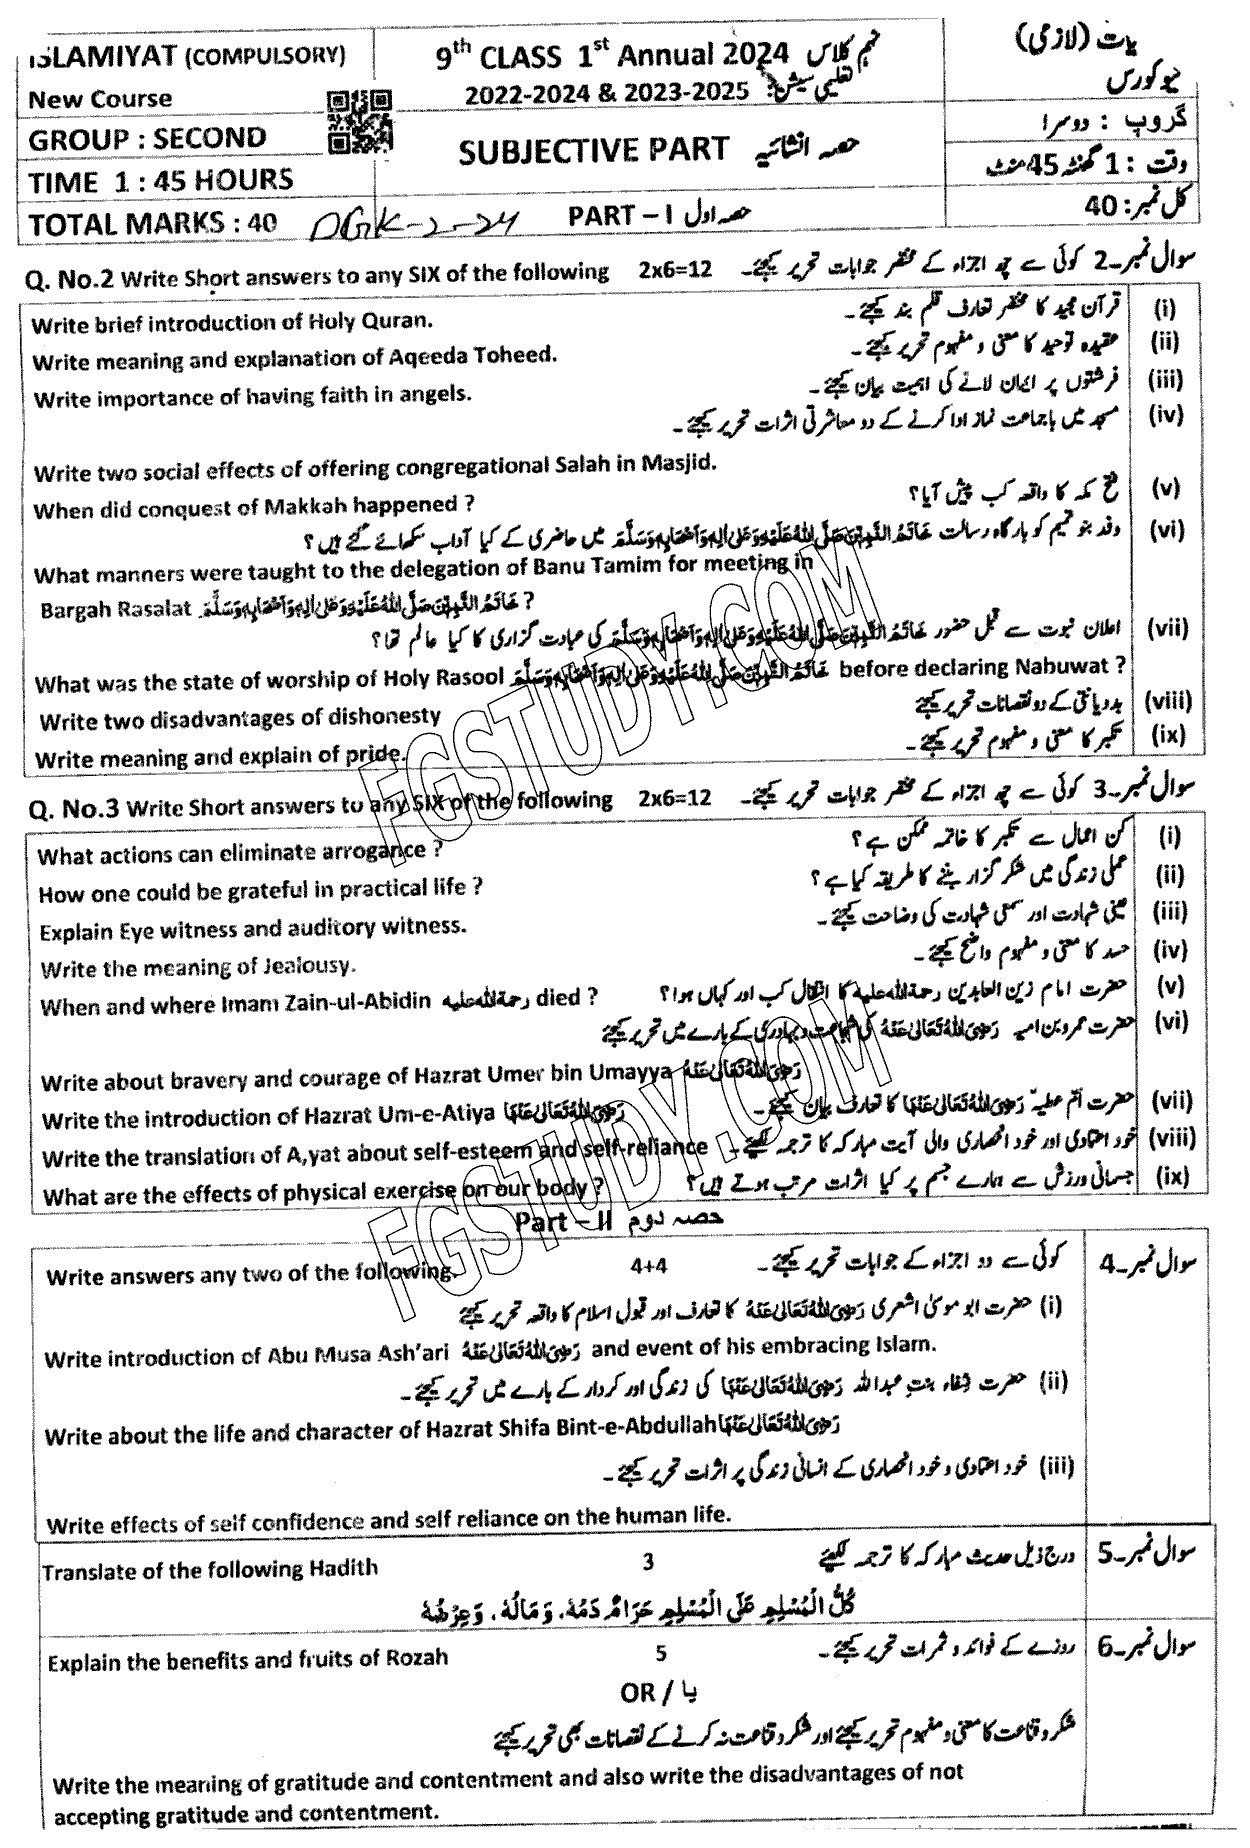 ISLAMIYAT (COMPULSORY) 9th CLASS 1st Annual 2024 نہم کلاس یات (لازمی)
New Course 2022-2024 & 2023-2025 تعلیمی سیشن: نیو کورس
GROUP : SECOND SUBJECTIVE PART حصہ انشائیہ گروپ : دوسرا
TIME 1 : 45 HOURS وقت : 1 گھنٹہ 45 منٹ
TOTAL MARKS : 40 DGK-2-24 PART – I حصہ اول کل نمبر: 40
Q. No.2 Write Short answers to any SIX of the following 2x6=12 سوال نمبر 2۔ کوئی سے چھ اجزاء کے مختصر جوابات تحریر کیجئے۔
(i) قرآن مجید کا مختصر تعارف قلم بند کیجئے۔
Write brief introduction of Holy Quran.
(ii) عقیدہ توحید کا معنی و مفہوم تحریر کیجئے۔
Write meaning and explanation of Aqeeda Toheed.
(iii) فرشتوں پر ایمان لانے کی اہمیت بیان کیجئے۔
Write importance of having faith in angels.
(iv) مسجد میں باجماعت نماز ادا کرنے کے دو معاشرتی اثرات تحریر کیجئے۔
Write two social effects of offering congregational Salah in Masjid.
(v) فتح مکہ کا واقعہ کب پیش آیا؟
When did conquest of Makkah happened ?
(vi) وفد بنو تمیم کو بارگاہ رسالت خَاتَمُ النَّبِيّٖنَ صَلَّى اللهُ عَلَيْهِ وَعَلٰى اٰلِهٖ وَاَصْحَابِهٖ وَسَلَّمَ میں حاضری کے کیا آداب سکھائے گئے ہیں؟
What manners were taught to the delegation of Banu Tamim for meeting in
Bargah Rasalat خَاتَمُ النَّبِيّٖنَ صَلَّى اللهُ عَلَيْهِ وَعَلٰى اٰلِهٖ وَاَصْحَابِهٖ وَسَلَّمَ ?
(vii) اعلان نبوت سے قبل حضور خَاتَمُ النَّبِيّٖنَ صَلَّى اللهُ عَلَيْهِ وَعَلٰى اٰلِهٖ وَاَصْحَابِهٖ وَسَلَّمَ کی عبادت گزاری کا کیا عالم تھا؟
What was the state of worship of Holy Rasool خَاتَمُ النَّبِيّٖنَ صَلَّى اللهُ عَلَيْهِ وَعَلٰى اٰلِهٖ وَاَصْحَابِهٖ وَسَلَّمَ before declaring Nabuwat ?
(viii) بددیانتی کے دو نقصانات تحریر کیجئے
Write two disadvantages of dishonesty
(ix) تکبر کا معنی و مفہوم تحریر کیجئے۔
Write meaning and explain of pride.
Q. No.3 Write Short answers to any SIX of the following 2x6=12 سوال نمبر 3۔ کوئی سے چھ اجزاء کے مختصر جوابات تحریر کیجئے۔
(i) کن اعمال سے تکبر کا خاتمہ ممکن ہے؟
What actions can eliminate arrogance ?
(ii) عملی زندگی میں شکر گزار بننے کا طریقہ کیا ہے؟
How one could be grateful in practical life ?
(iii) عینی شہادت اور سمعی شہادت کی وضاحت کیجئے۔
Explain Eye witness and auditory witness.
(iv) حسد کا معنی و مفہوم واضح کیجئے۔
Write the meaning of Jealousy.
(v) حضرت امام زین العابدین رحمۃ اللہ علیہ کا انتقال کب اور کہاں ہوا؟
When and where Imam Zain-ul-Abidin رحمۃ اللہ علیہ died ?
(vi) حضرت عمرو بن امیہ رَضِیَ اللهُ تَعَالٰی عَنْهُ کی شجاعت و بہادری کے بارے میں تحریر کیجئے
Write about bravery and courage of Hazrat Umer bin Umayya رَضِیَ اللهُ تَعَالٰی عَنْهُ
(vii) حضرت اُم عطیہ رَضِیَ اللهُ تَعَالٰی عَنْهَا کا تعارف بیان کیجئے۔
Write the introduction of Hazrat Um-e-Atiya رَضِیَ اللهُ تَعَالٰی عَنْهَا
(viii) خود اعتمادی اور خود انحصاری والی آیت مبارکہ کا ترجمہ لکھیئے۔
Write the translation of A,yat about self-esteem and self-reliance
(ix) جسمانی ورزش سے ہمارے جسم پر کیا اثرات مرتب ہوتے ہیں؟
What are the effects of physical exercise on our body ?
Part – II حصہ دوم
سوال نمبر 4۔ کوئی سے دو اجزاء کے جوابات تحریر کیجئے۔ 4+4 Write answers any two of the following.
(i) حضرت ابو موسیٰ اشعری رَضِیَ اللهُ تَعَالٰی عَنْهُ کا تعارف اور قبول اسلام کا واقعہ تحریر کیجئے
Write introduction of Abu Musa Ash'ari رَضِیَ اللهُ تَعَالٰی عَنْهُ and event of his embracing Islam.
(ii) حضرت شفاء بنتِ عبداللہ رَضِیَ اللهُ تَعَالٰی عَنْهَا کی زندگی اور کردار کے بارے میں تحریر کیجئے۔
Write about the life and character of Hazrat Shifa Bint-e-Abdullah رَضِیَ اللهُ تَعَالٰی عَنْهَا
(iii) خود اعتمادی و خود انحصاری کے انسانی زندگی پر اثرات تحریر کیجئے۔
Write effects of self confidence and self reliance on the human life.
سوال نمبر 5۔ درج ذیل حدیث مبارکہ کا ترجمہ لکھیئے 3 Translate of the following Hadith
كُلُّ الْمُسْلِمِ عَلَى الْمُسْلِمِ حَرَامٌ دَمُهٗ، وَمَالُهٗ، وَعِرْضُهٗ
سوال نمبر 6۔ روزے کے فوائد و ثمرات تحریر کیجئے۔ 5 Explain the benefits and fruits of Rozah
OR / یا
شکر و قناعت کا معنی و مفہوم تحریر کیجئے اور شکر و قناعت نہ کرنے کے نقصانات بھی تحریر کیجئے
Write the meaning of gratitude and contentment and also write the disadvantages of not
accepting gratitude and contentment.
FGSTUDY.COM
FGSTUDY.COM